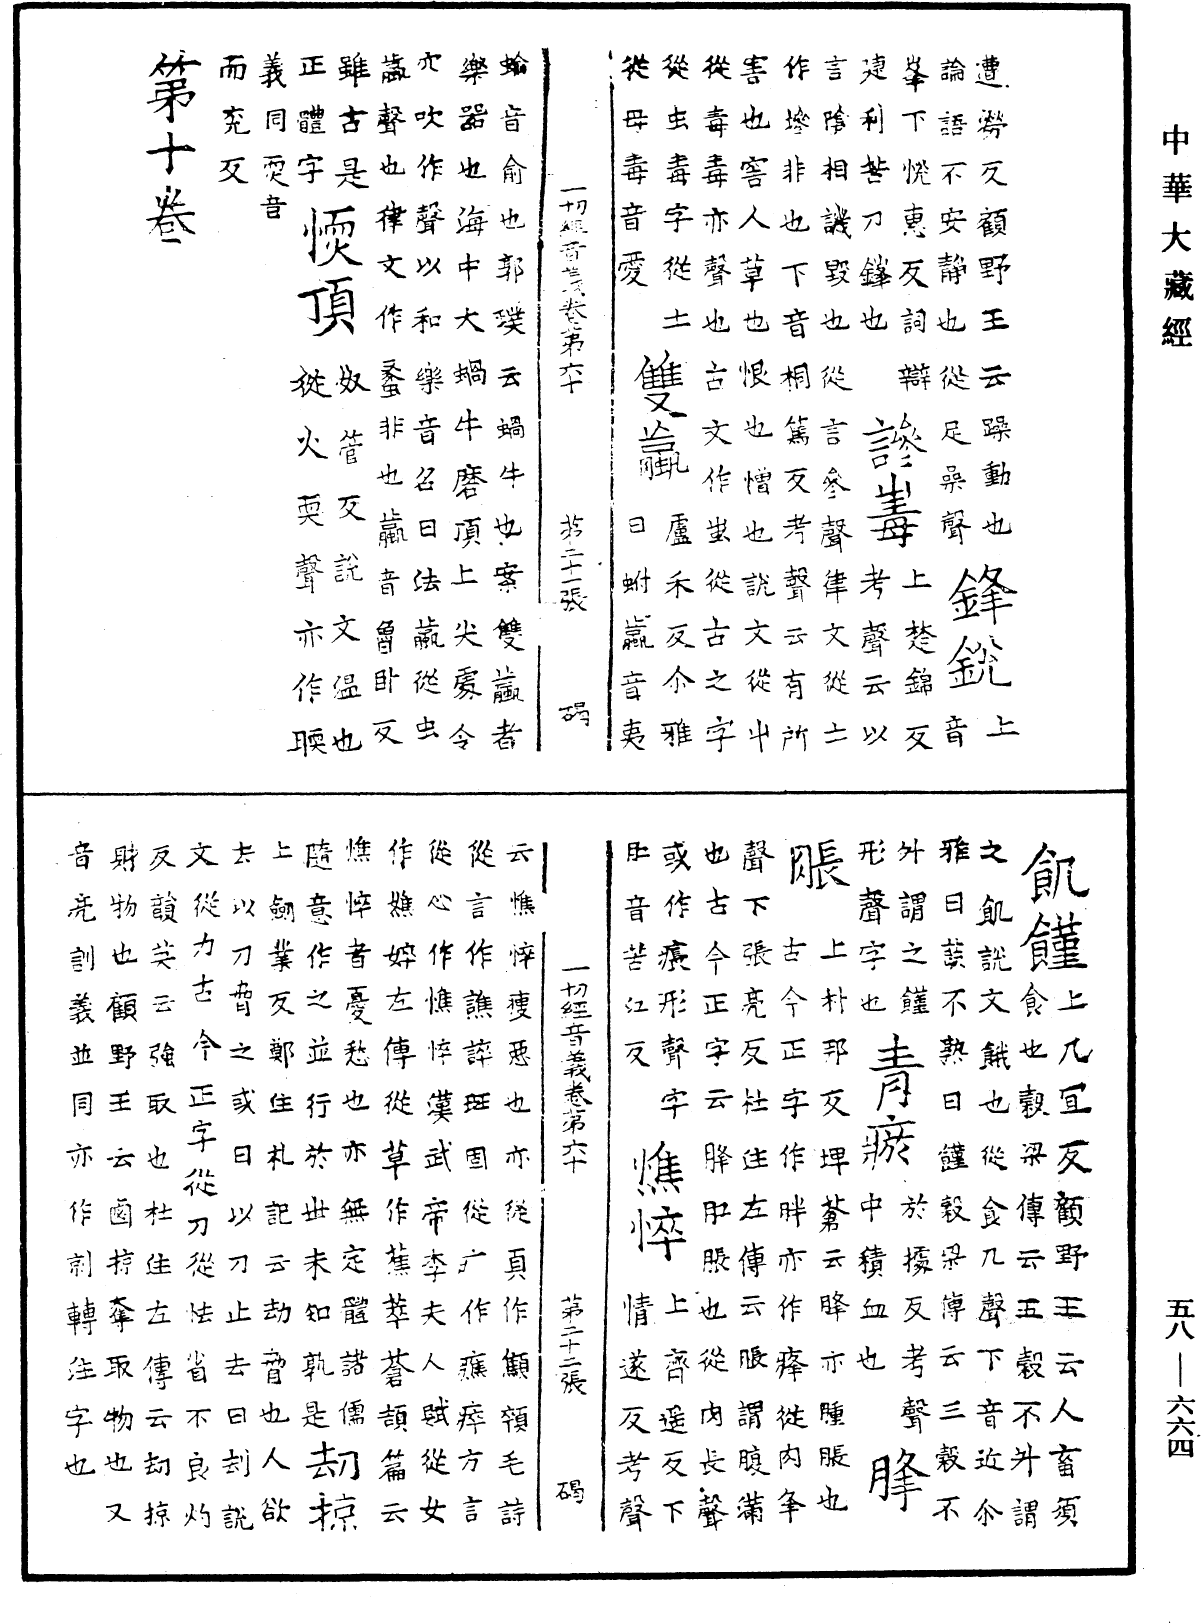 中華大藏經
遭勞反顧野王云躁動也
論語不安靜也從足喿聲
鋒銳
上
音
峯下悅惠反詞辯
建利苦刀鋒也
譖毒
上楚錦反
考聲云以
言陰相譏毀也從言參聲律文從土
作墋非也下音桐篤反考聲云有所
害也害人草也恨也憎也說文從屮
從毒毒亦聲也古文作𧉅從古之字
從虫毒字從士
從毋毒音愛
雙蠃
盧禾反尒雅
曰蚹蠃音夷
一切經音義卷第六十 第二十一張 碣
蝓音俞也郭璞云蝸牛也案雙蠃者
樂器也海中大蝸牛磨頂上尖處令
穴吹作聲以和樂音名曰法蠃從虫
𣎆聲也律文作蠡非也蠃音魯卧反
雖古是
正體字
煗頂
奴管反說文温也
從火耎聲亦作㬉
義同耎音
而兖反
第十卷
飢饉
上几宜反顧野王云人畜須
食也穀梁傳云五穀不升謂
之飢說文餓也從食几聲下音近尒
雅曰蔬不熟曰饉穀梁傳云三穀不
升謂之饉
形聲字也
青瘀
於據反考聲
中積血也
膖
脹
上朴邦反埤蒼云膖亦腫脹也
古今正字作胖亦作㾦從肉夆
聲下張亮反杜注左傳云脹謂腹滿
也古今正字云膖肛脹也從肉長聲
或作痮形聲字
肛音苦江反
憔悴
上齊遥反下
情遂反考聲
一切經音義卷第六十 第二十二張 碣
云憔悴瘦惡也亦從頁作顦顇毛詩
從言作譙誶班固從疒作癄瘁方言
從心作憔悴漢武帝李夫人賦從女
作嫶婞左傳從草作蕉萃蒼頡篇云
憔悴者憂愁也亦無定體諸儒
隨意作之並行於世未知孰是
劫掠
上劒業反鄭注礼記云劫脅也人欲
去以刀脅之或曰以刀止去曰刦說
文從力古今正字從刀從怯省不良灼
反韻英云強取也杜注左傳云劫掠
財物也顧野王云鹵掠奪取物也又
音亮訓義並同亦作剠轉注字也
五八—六六四